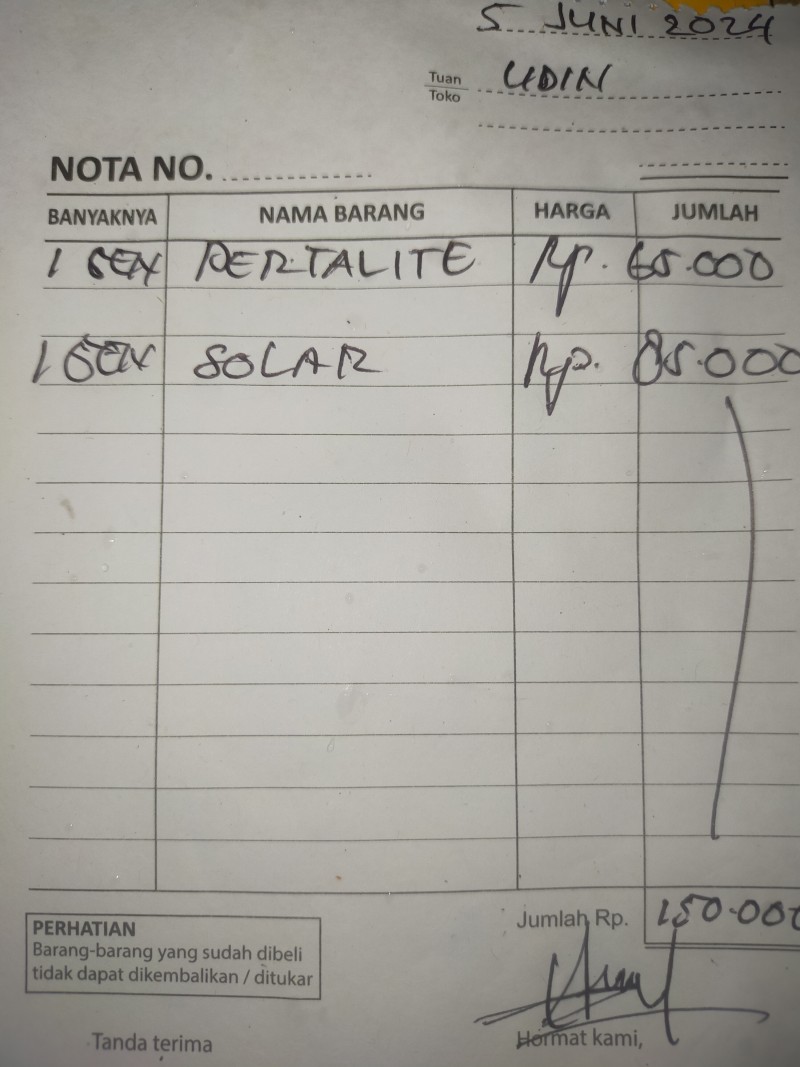 5 JUNI 2024
Tuan UDIN
Toko
NOTA NO.
BANYAKNYA NAMA BARANG HARGA JUMLAH
1 GEN PERTALITE Rp. 65.000
1 GEN SOLAR Rp. 85.000
Jumlah Rp. 150.000
PERHATIAN
Barang-barang yang sudah dibeli
tidak dapat dikembalikan / ditukar
Tanda terima Hormat kami,